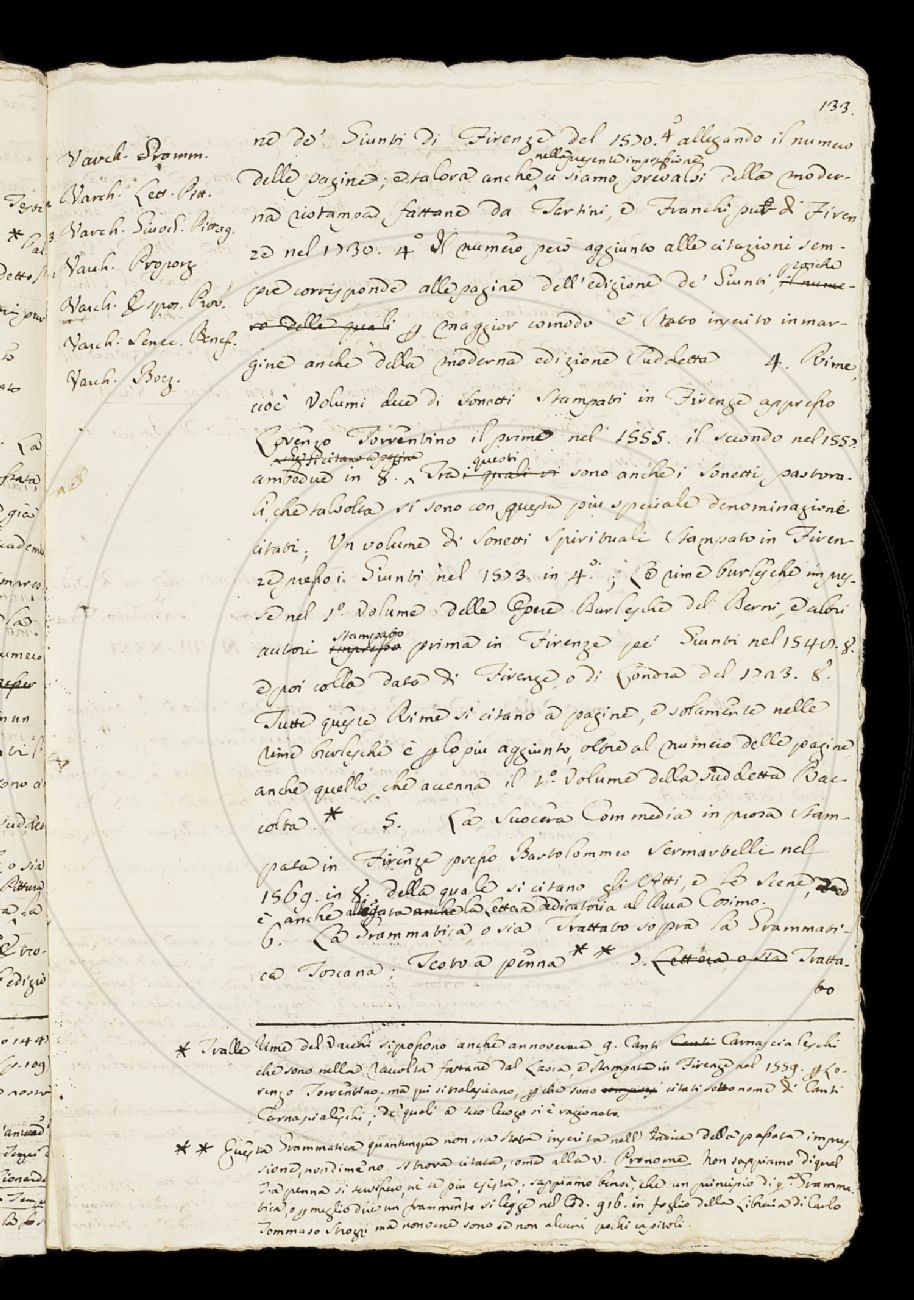 133.
Varch. Gramm.
Varch. Lett. Pitt.
Varch. Giuoc. Pittag.
Varch. Proporz.
Varch. Espos. Prov.
Varch. Senec. Benef.
Varch. Boez.
ne de' Giunti di Firenze del 1570. 4.° allegando il numero
delle pagine; e talora anche nella presente impressione ci siamo prevalsi della moder-
na ristampa fattane da Tartini, e Franchi pur di Firen
ze nel 1730. 4.° Il numero però aggiunto alle citazioni sem-
pre corrisponde alle pagine dell'edizione de' Giunti perchè il nume-
ro delle quali p maggior comodo è stato inserito in mar-
gine anche della moderna edizione suddetta 4. Rime,
cioè Volumi due di Sonetti stampati in Firenze appresso
Lorenzo Torrentino il primo nel 1555. il secondo nel 1557
e si citano a pagine questi
ambedue in 8. Tra i quali vi sono anche i Sonetti pastora-
li, che talvolta si sono con questa più speciale denominazione
citati; Un volume di Sonetti Spirituali stampato in Firen-
ze presso i Giunti nel 1573. in 4.°; Le rime burlesche impres-
se nel 1.° Volume delle Opere Burlesche del Berni, e altri
autori stampato impresso prima in Firenze pe' Giunti nel 1548. 8.
e poi colla data di Firenze, o di Londra del 1723. 8.
Tutte queste Rime si citano a pagine, e solamente nelle
rime burlesche è p lo più aggiunto, oltre al numero delle pagine,
anche quello, che accenna il 1.° Volume della suddetta Rac-
colta. * 5. La Suocera Commedia in prosa stam-
pata in Firenze presso Bartolommeo Sermartelli nel
1569. in 8. della quale si citano gli Atti, e le Scene, ed
è anche allegata anche la Lettera dedicatoria al Duca Cosimo.
6. La Grammatica, o sia Trattato sopra la Grammati-
ca Toscana; Testo a penna ** 7. Lettera, o sia Tratta-
to
* Tralle Rime del Varchi si possono anche annoverare 9. Canti Canti Carnascialeschi
che sono nella Raccolta fattane dal Lasca, e stampata in Firenze nel 1559. p Lo-
renzo Torrentino. ma qui si tralasciano, p che sono citati sotto nome di Canti
Carnascialeschi; de' quali a suo luogo si è ragionato.
** Questa Grammatica quantunque non sia stata inserita nell'Indice della passata impres
sione, nondimeno si trova citata, come alla V. Pronome. Non sappiamo di qual
Ta penna si servissero, nè se più esista. sappiamo bensì, che un principio di q.a Gramma
tica, o p meglio dire un frammento si legge nel Cod. 916. in foglio della Libreria di Carlo
Tommaso Strozzi ma non ne sono se non alcuni pochi capitoli.